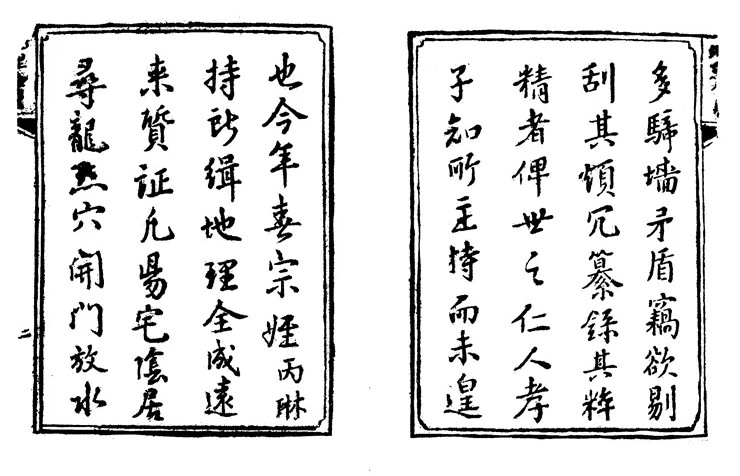 多騎墻矛盾竊欲剔
刮其煩冗纂錄其粹
精者俾世之仁人孝
子知所主持而未遑
也今年春宗姪丙琳
持所緝地理全成遠
来質証凡陽宅陰居
尋龍点穴開門放水
二